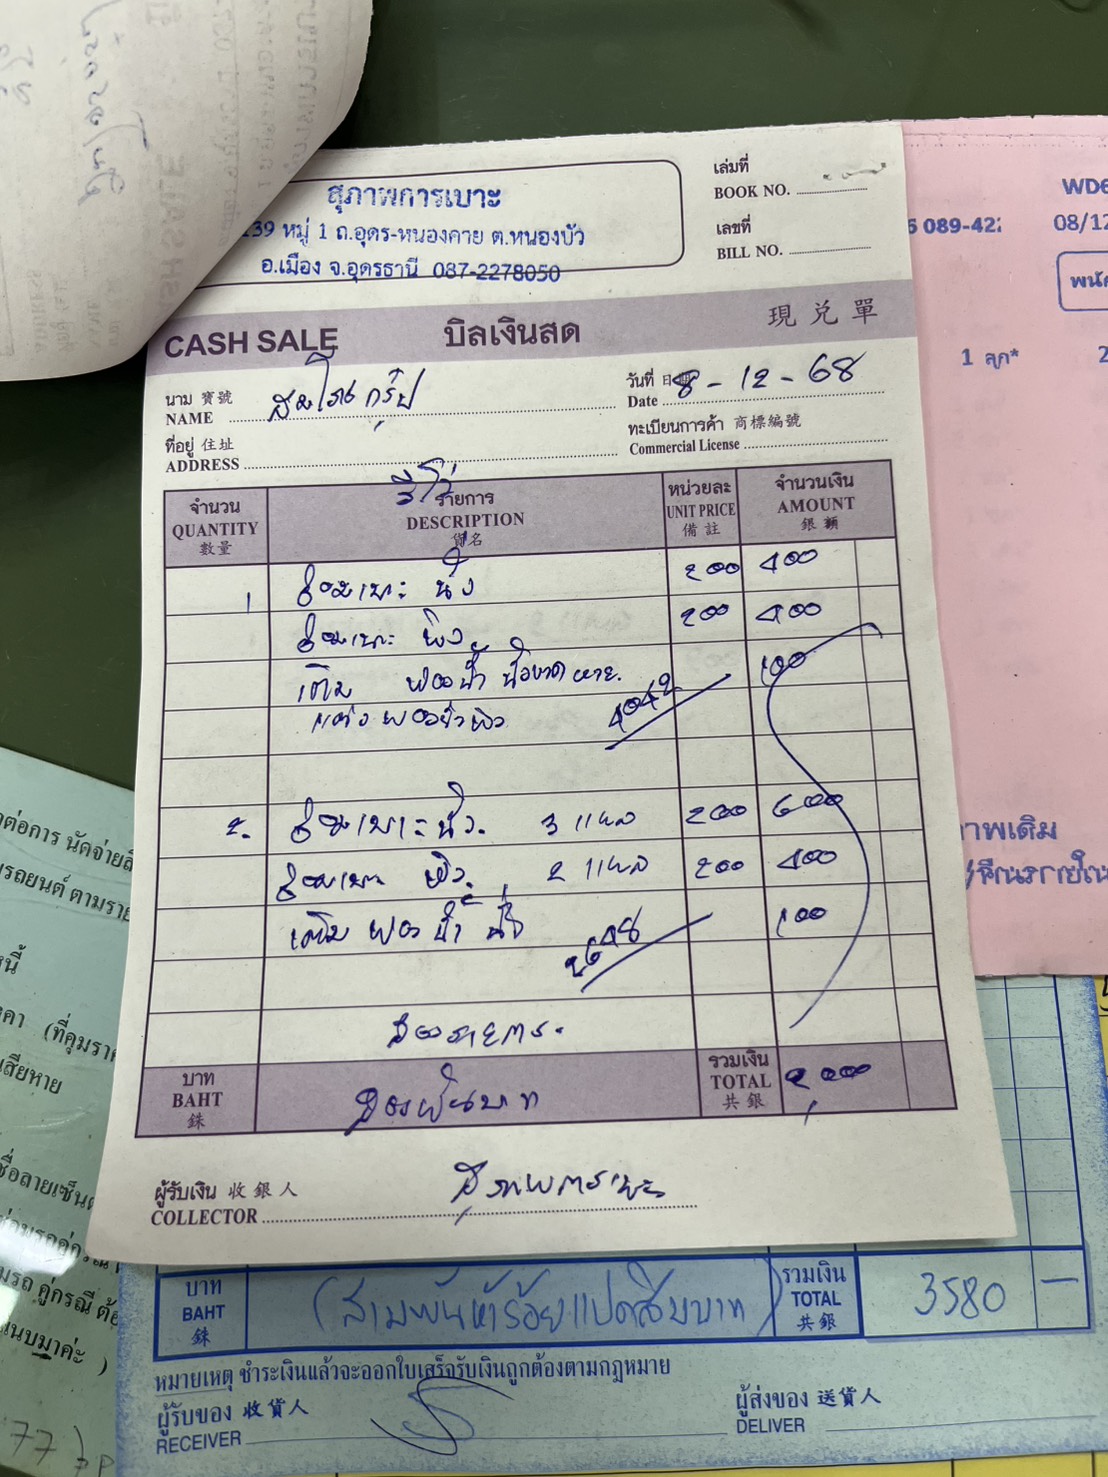 สุภาพการเบาะ
39 หมู่ 1 ถ.อุดร-หนองคาย ต.หนองบัว
อ.เมือง จ.อุดรธานี 087-2278050
เล่มที่
BOOK NO.
เลขที่
BILL NO.
CASH SALE บิลเงินสด 現兌單
นาม 寶號
NAME
วันที่ 日期 8-12-68
Date
ที่อยู่ 住址
ADDRESS
ทะเบียนการค้า 商標編號
Commercial License
จำนวน QUANTITY 數量
รายการ DESCRIPTION 貨名
หน่วยละ UNIT PRICE 備註
จำนวนเงิน AMOUNT 銀額
1 ซ่อมเบาะ นั่ง 200 400
ซ่อมเบาะ พิง 200 400
เติม ฟองน้ำ 100
4042
2. ซ่อมเบาะนั่ง. 3 แผล 200 600
ซ่อมเบาะ พิง. 2 แผล 200 400
เติม ฟองน้ำ นั่ง 100
2648
สองรายการ.
บาท BAHT 銖 สองพันบาท รวมเงิน TOTAL 共銀 2,000
ผู้รับเงิน 收銀人
COLLECTOR สุภาพการเบาะ
089-422
08/12
1 ลูก*
าพเดิม
บาท BAHT 銖 (สามพันห้าร้อยแปดสิบบาท) รวมเงิน TOTAL 共銀 3580 —
หมายเหตุ ชำระเงินแล้วจะออกใบเสร็จรับเงินถูกต้องตามกฎหมาย
ผู้รับของ 收貨人
RECEIVER
ผู้ส่งของ 送貨人
DELIVER
ต่อการ นัดจ่ายสิ
รถยนต์ ตามราย
นี้
คา (ที่คุมราค
สียหาย
ชื่อลายเซ็น
มรถ คู่กรณี ต้อ
นบมาค่ะ )
77